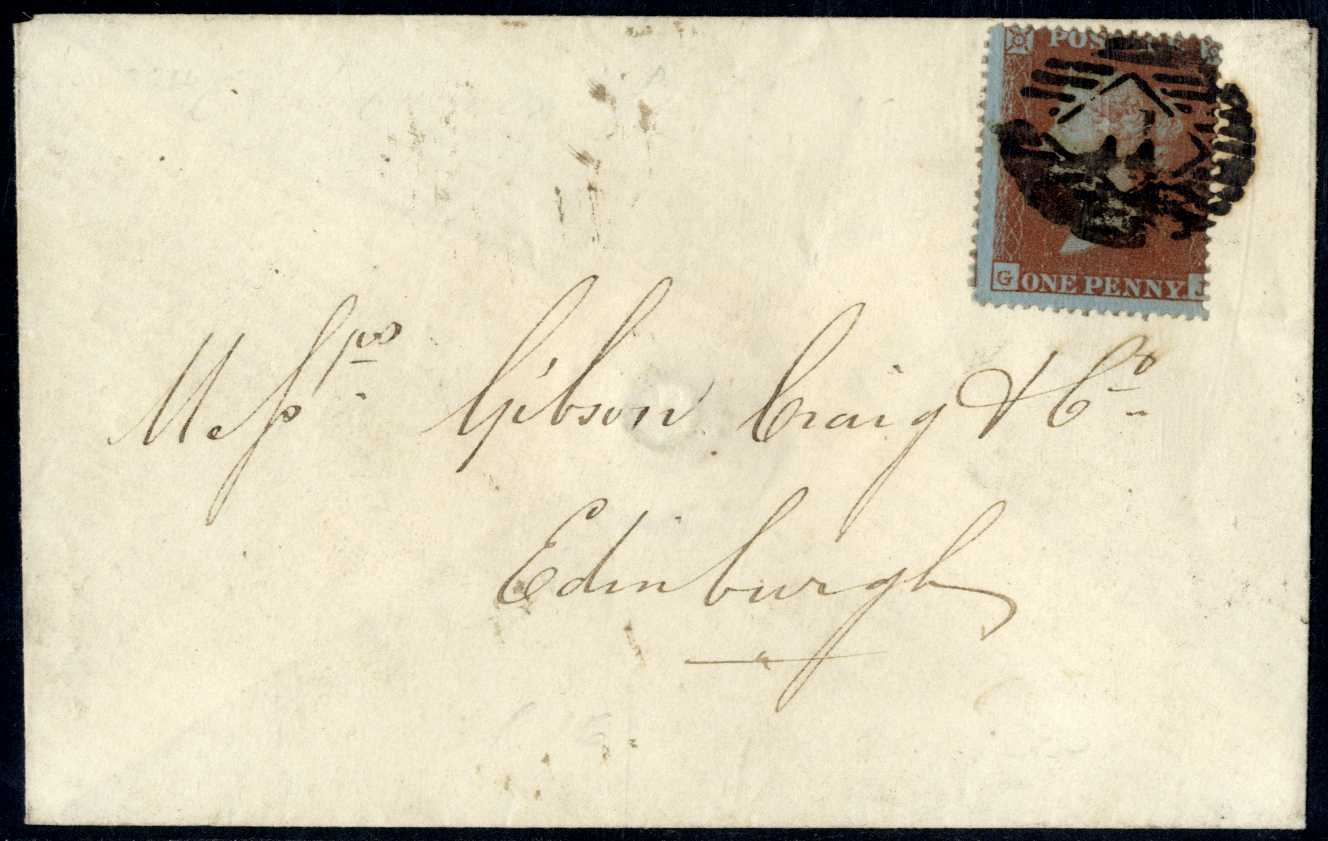 POSTAGE
G ONE PENNY J
Messrs. Gibson Craig & Co.
Edinburgh